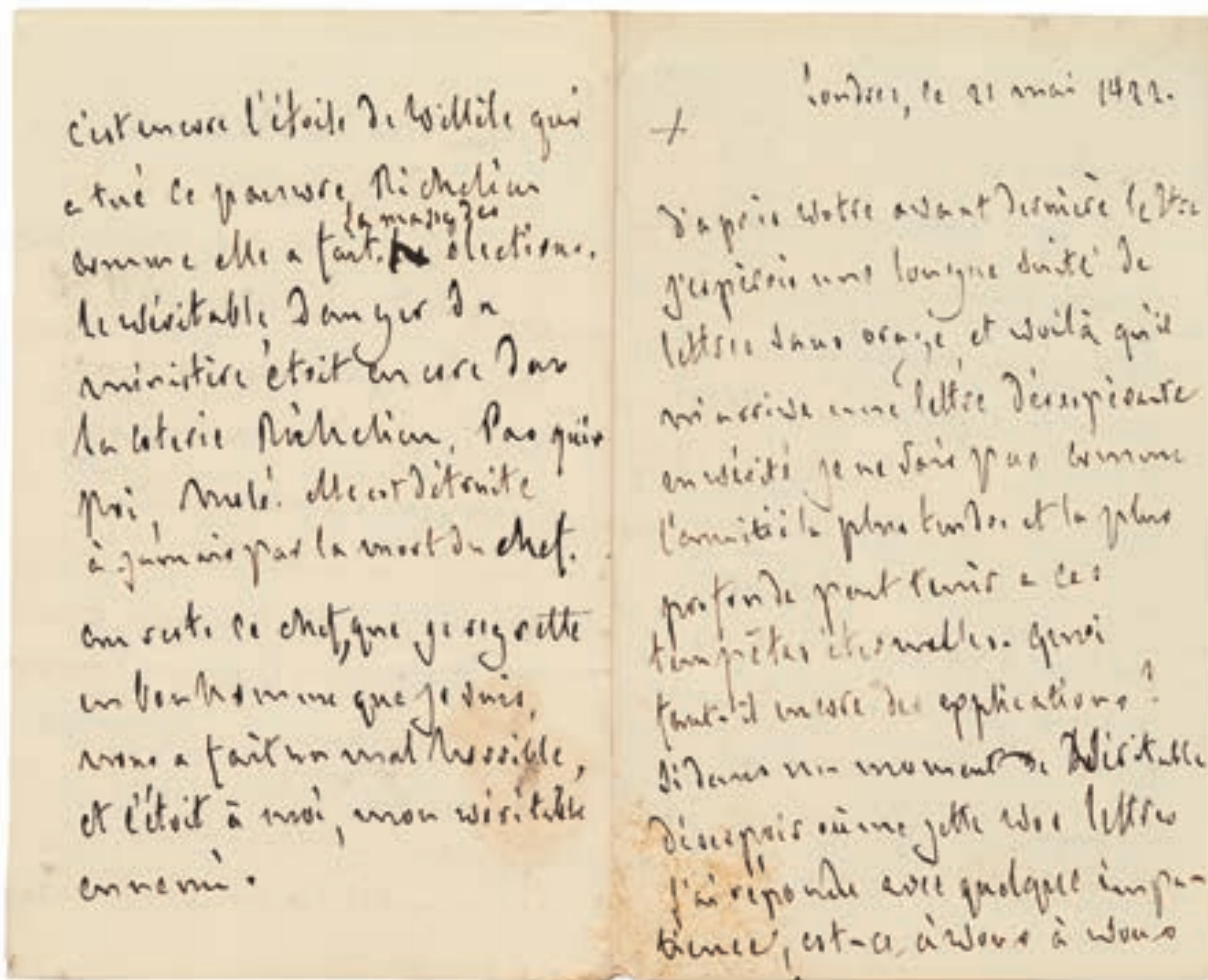 c'est encore l'étoile de Villèle qui
a tué ce pauvre Richelieu
comme elle a fait la masse des élections.
le véritable danger du
ministère étoit encore dans
la coterie Richelieu, Pasquier
Molé. elle est détruite
à jamais par la mort du chef.
au reste ce chef, que je regrette
en bon homme que je suis,
nous a fait un mal horrible,
et c'étoit à moi, mon véritable
ennemi.
Londres, le 21 mai 1822.
+
D'après votre avant dernière lettre
j'espérois une longue suite de
lettres sans orage, et voilà qu'il
m'arrive une lettre désespérante
en vérité je ne sais pas comme
l'amitié la plus tendre et la plus
profonde peut tenir a ces
tempêtes éternelles. quoi
faut-il encore des explications?
si dans un moment de véritable
désespoir où me jette vos lettres
j'ai réponde avec quelque impa-
tience, est-ce à vous à vous